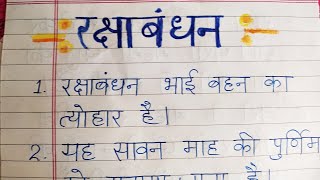 रक्षाबंधन
1. रक्षाबंधन भाई बहन का
त्योहार है।
2. यह सावन माह की पुर्णिम
है।